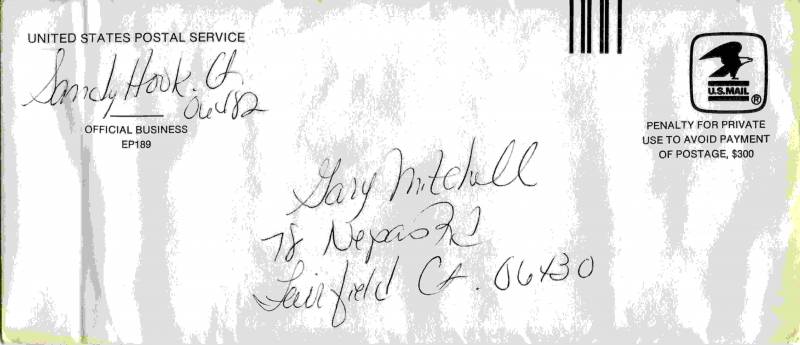 UNITED STATES POSTAL SERVICE
Sandy Hook. Ct.
06482
OFFICIAL BUSINESS
EP189
U.S.MAIL ®
PENALTY FOR PRIVATE
USE TO AVOID PAYMENT
OF POSTAGE, $300
Gary Mitchell
78 Nepas Rd
Fairfield Ct. 06430